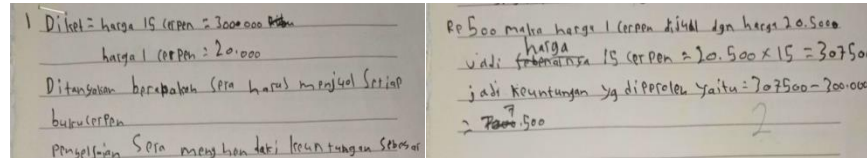 1 Diket = harga 15 cerpen = 300.000
harga 1 cerpen = 20.000
Ditanyakan berapakah Sera harus menjual Setiap
buku cerpen
Penyelesaian Sera menghendaki keuntungan Sebesar
Rp 500 maka harga 1 cerpen dijual dgn harga 20.5000
harga
Jadi sebenarnya 15 cerpen = 20.500 × 15 = 30750
jadi keuntungan yg diperoleh yaitu = 307500 - 300.000
= 7.500
2